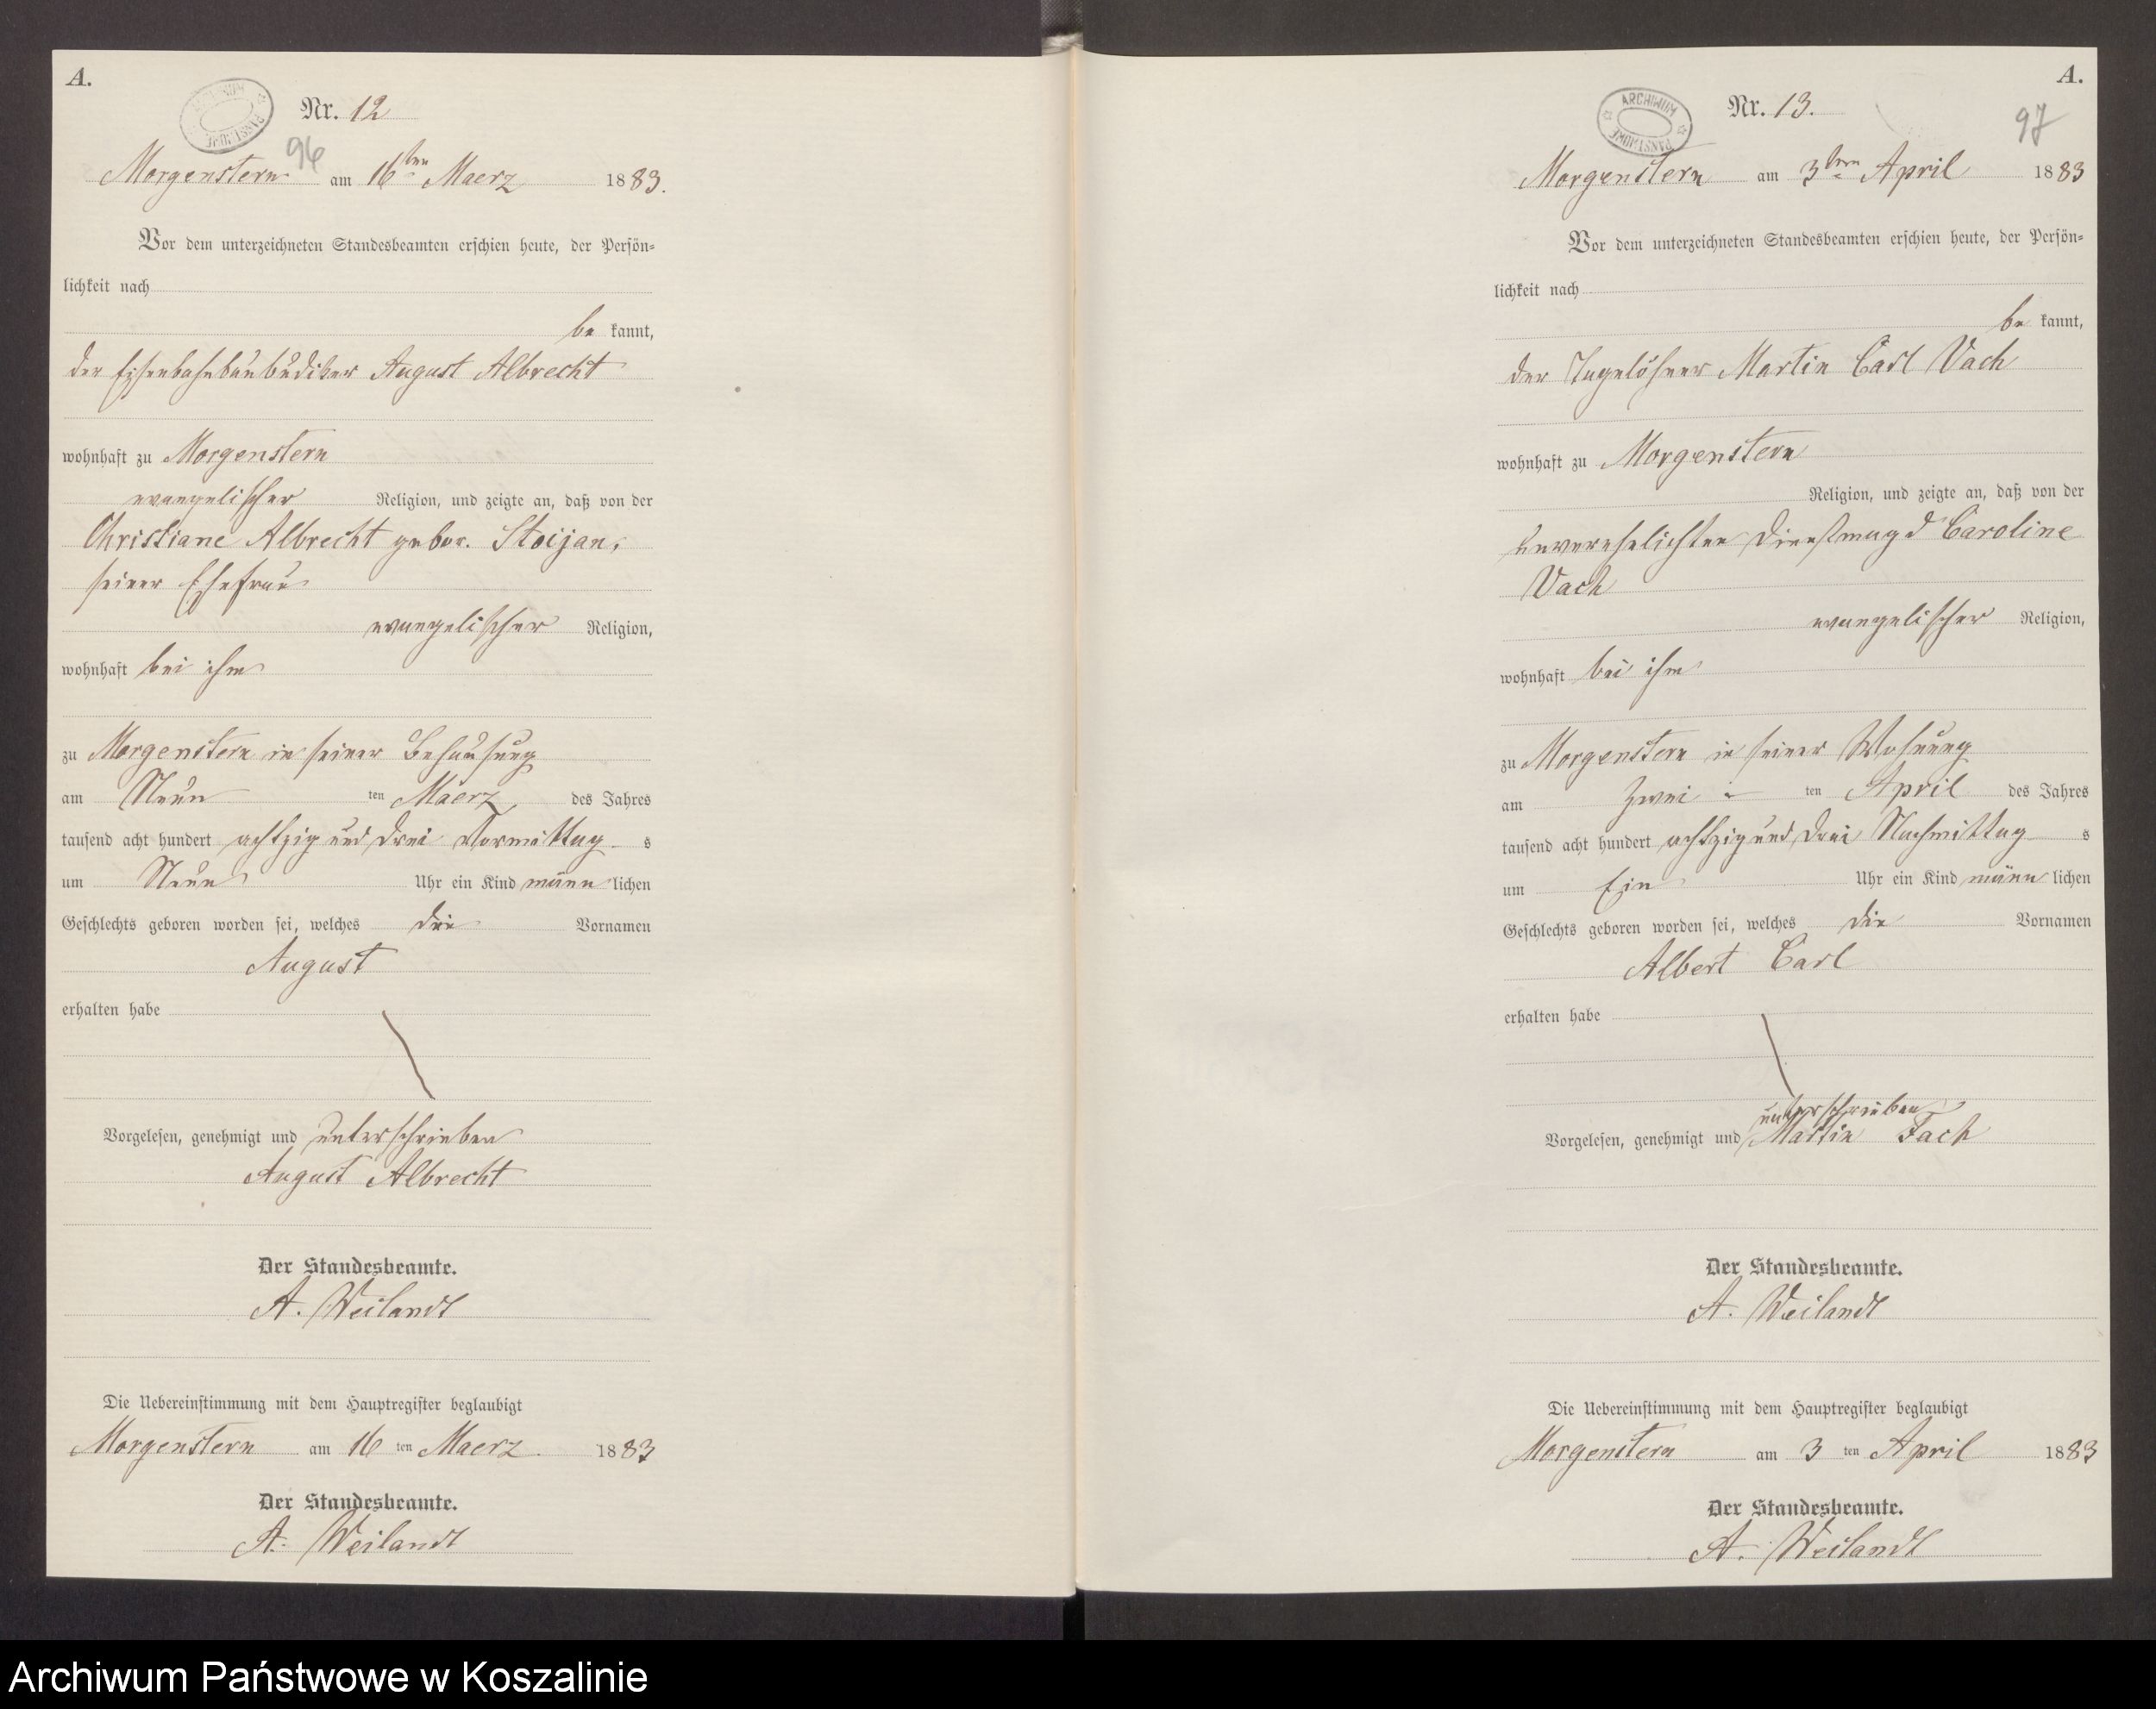 A.
ARCHIWUM PAŃSTWOWE
Nr. 12
96
Morgenstern am 16ten Maerz 1883.
Vor dem unterzeichneten Standesbeamten erschien heute, der Persön=
lichkeit nach
be kannt,
der Eisenbahnbaubudiker August Albrecht
wohnhaft zu Morgenstern
evangelischer Religion, und zeigte an, daß von der
Christiane Albrecht gebor. Stoijan,
seiner Ehefrau
evangelischer Religion,
wohnhaft bei ihm
zu Morgenstern in seiner Behausung
am Neun ten Maerz des Jahres
tausend acht hundert achtzig und drei Vormittag s
um Neun Uhr ein Kind männ lichen
Geschlechts geboren worden sei, welches die Vornamen
August
erhalten habe
Vorgelesen, genehmigt und unterschrieben
August Albrecht
Der Standesbeamte.
A. Weilandt
Die Uebereinstimmung mit dem Hauptregister beglaubigt
Morgenstern am 16 ten Maerz 1883
Der Standesbeamte.
A. Weilandt
A.
ARCHIWUM PAŃSTWOWE
Nr. 13.
97
Morgenstern am 3ten April 1883
Vor dem unterzeichneten Standesbeamten erschien heute, der Persön=
lichkeit nach
be kannt,
der Tagelöhner Martin Carl Vach
wohnhaft zu Morgenstern
Religion, und zeigte an, daß von der
unverehelichten Dienstmagd Caroline
Vach
evangelischer Religion,
wohnhaft bei ihm
zu Morgenstern in seiner Wohnung
am Zwei ten April des Jahres
tausend acht hundert achtzig und drei Nachmittag s
um Ein Uhr ein Kind männ lichen
Geschlechts geboren worden sei, welches die Vornamen
Albert Carl
erhalten habe
unterschrieben
Vorgelesen, genehmigt und Martin Fach
Der Standesbeamte.
A. Weilandt
Die Uebereinstimmung mit dem Hauptregister beglaubigt
Morgenstern am 3 ten April 1883
Der Standesbeamte.
A. Weilandt
Archiwum Państwowe w Koszalinie